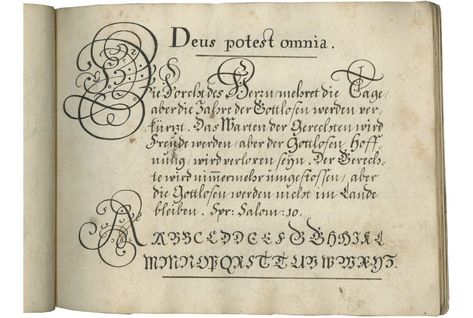 Deus potest omnia.
Die Forcht des Herrn/mehret die Tage/
aber die Jahre der Gottlosen werden ver-
kürtzt. Das Warten der Gerechten wird
Freude werden/aber der Gottlosen Hoff-
nung/wird verloren seyn. Der Gerech-
te wird nim̄ermehr umgestossen/aber
die Gottlosen werden nicht im Lande
bleiben. Spr: Salom: 10.
A A B B C C D D E E F G G H H I K L
M M N N O P Q R S T T U V W W X Y Z.